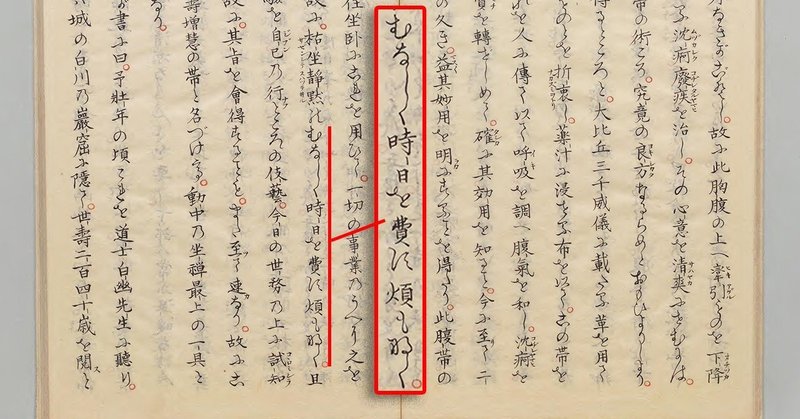 故に此胸腹の上へ牽引ものを下降
る沈痾癈疾を治し。その心意を清爽にせむるは。
帯の術ころ。究竟の良方なるらめとおもひよりしより
得るところと。大比丘三千威儀に載たる草を用て
ものとを折衷し薬汁に浸せる布を以て。この帯を
れを人に傳て以て呼吸を調へ腹氣を和し沈痾を
質を轉ぜしめて。確に其効用を知ると。今に至て二
の久き。益其妙用を明にすることを得たり。此腹帯の
むなしく時日を費す煩もなく。
往坐臥にこれを用ひて。一切の事業のうへに之を
故に。枯坐靜黙のむなしく時日を費す煩もなく。且
驗を自己の行ところの伎藝。今日の世務の上に試知
故に。其旨を會得することも。また至て速なり。故にこ
壽増慧の帯と名づける。動中の坐禅最上の一具と
なり。
が書に曰。予壯年の頃これを道士白幽先生に聽り。
城の白川の巖窟に隠て。世壽二百四十歳を閲と